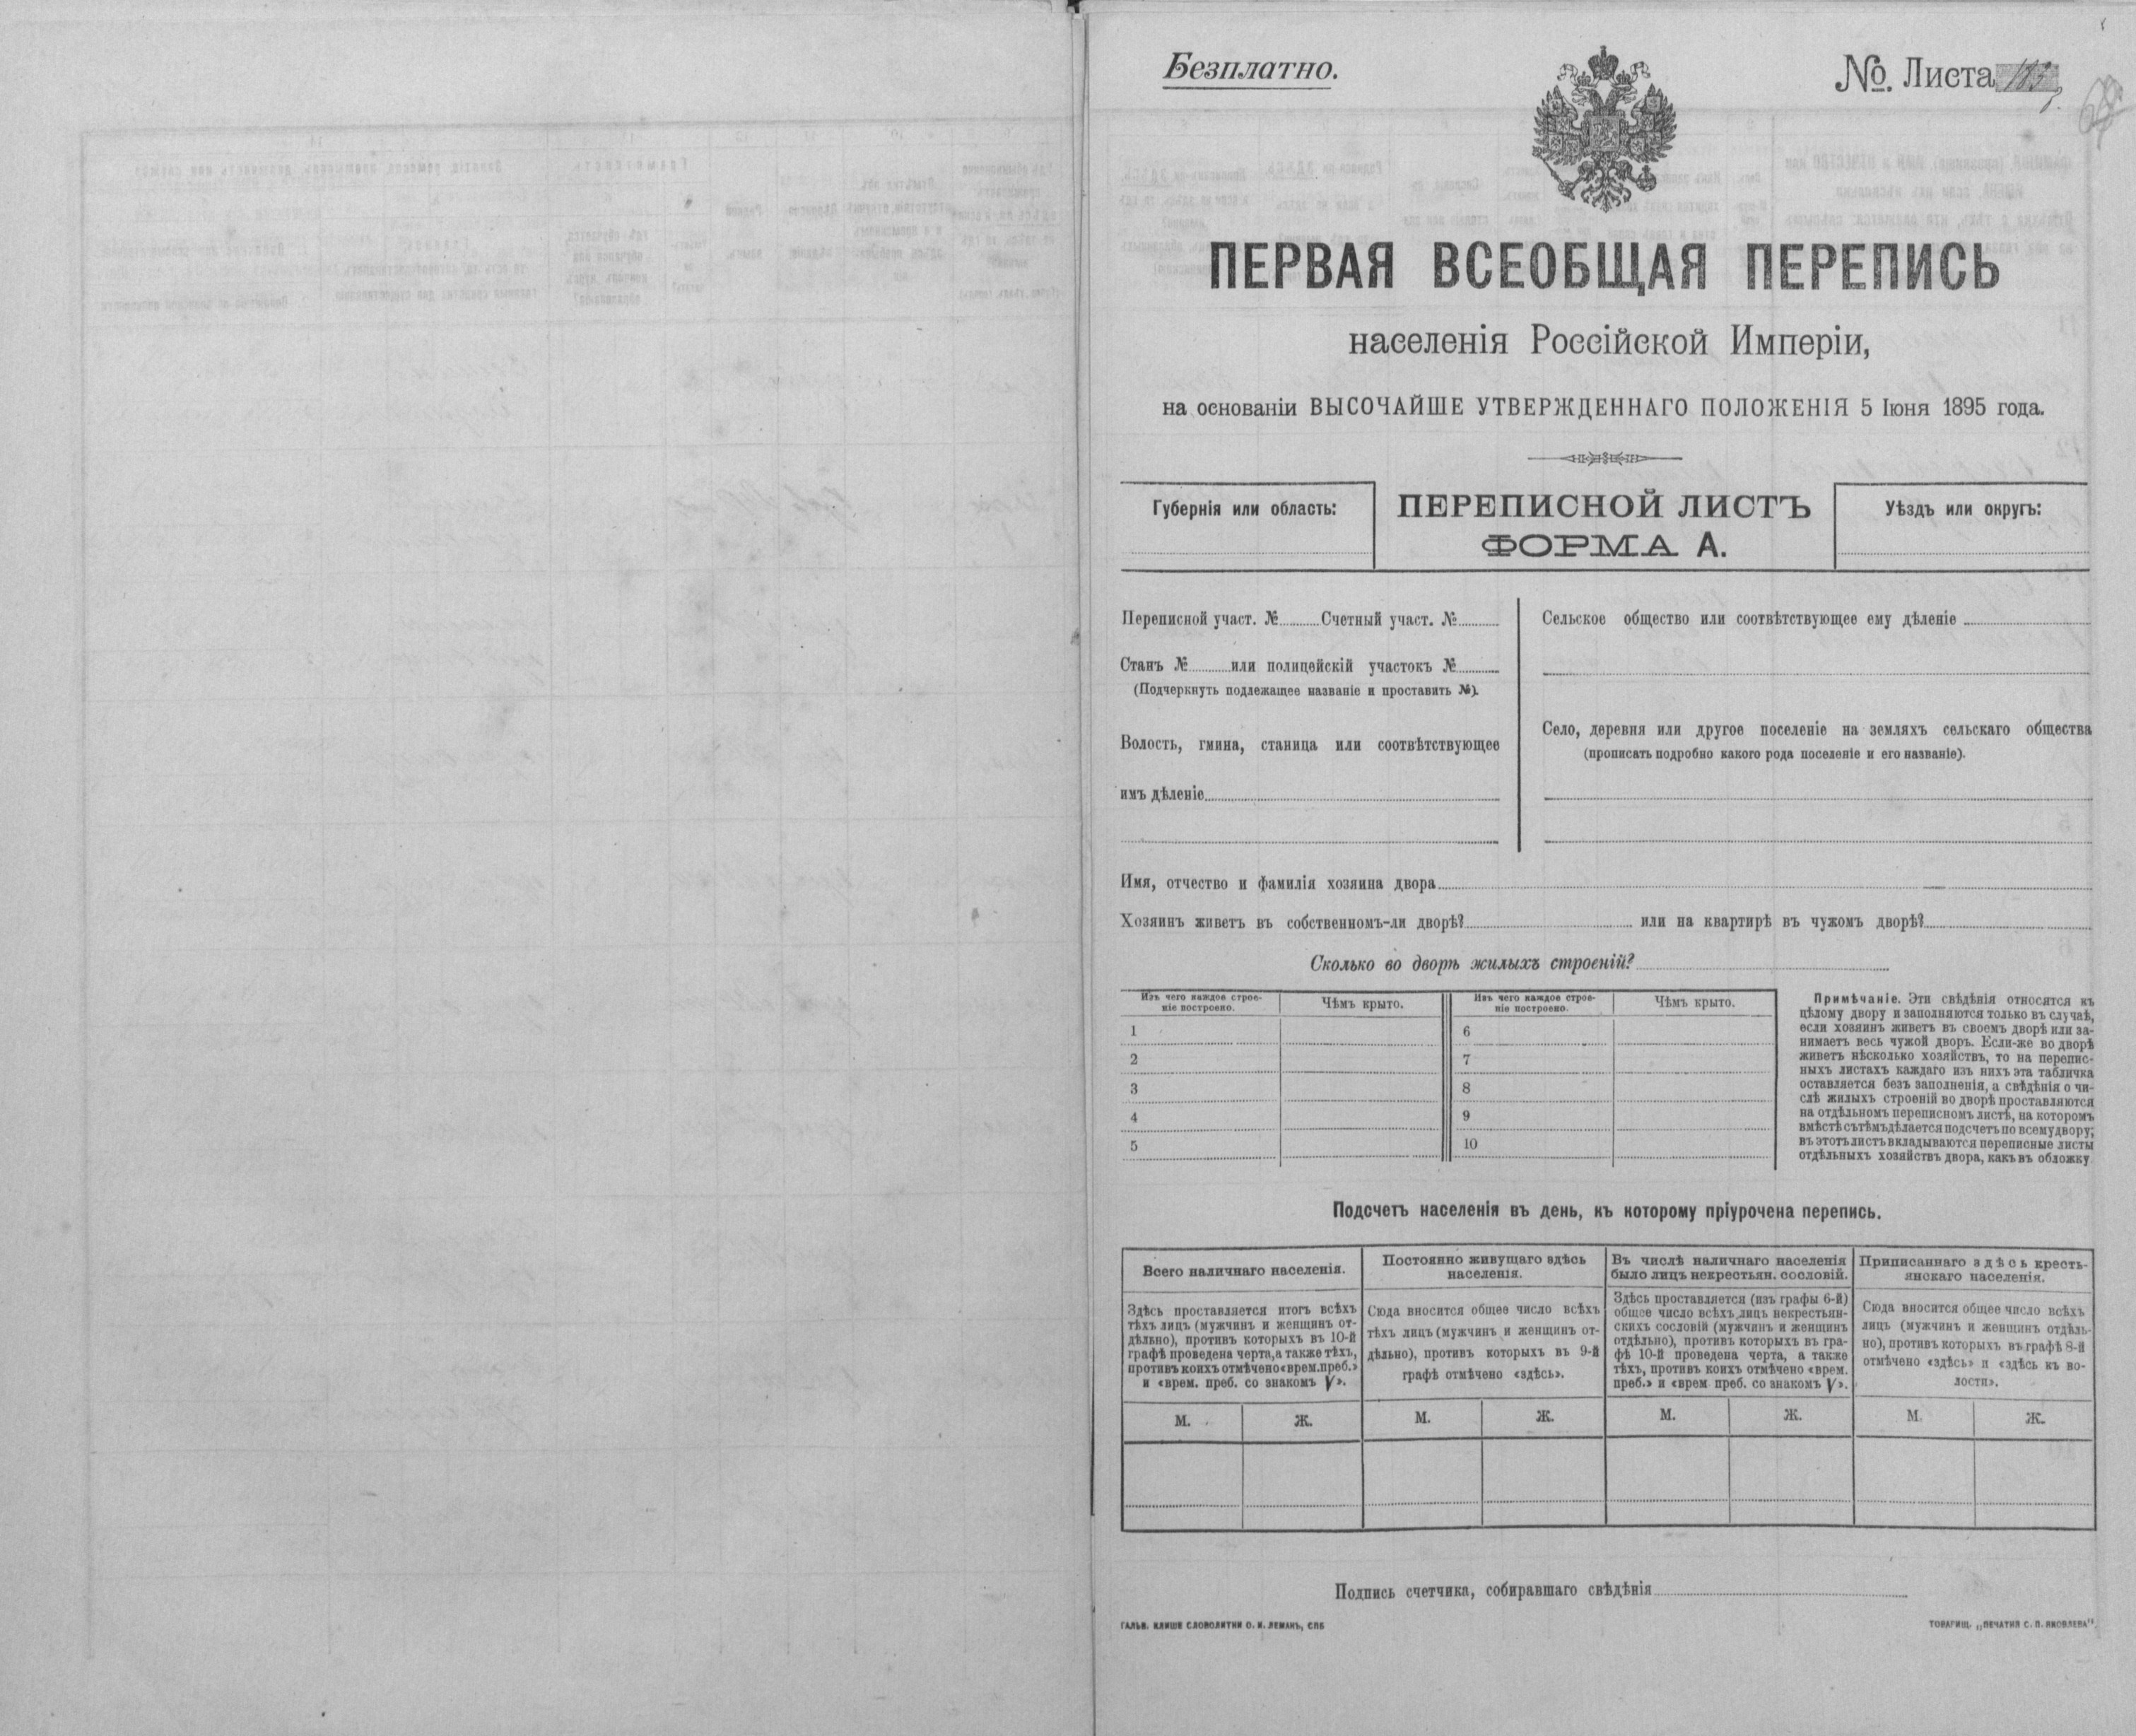 Безплатно.
№. Листа
ПЕРВАЯ ВСЕОБЩАЯ ПЕРЕПИСЬ
населенія Россійской Имперіи,
на основаніи ВЫСОЧАЙШЕ УТВЕРЖДЕННАГО ПОЛОЖЕНІЯ 5 Іюня 1895 года.
Губернія или область:
ПЕРЕПИСНОЙ ЛИСТЪ
ФОРМА А.
Уѣздъ или округъ:
Переписной участ. № Счетный участ. №
Станъ № или полицейскій участокъ №
(Подчеркнуть подлежащее названіе и проставить №).
Волость, гмина, станица или соотвѣтствующее
имъ дѣленіе
Сельское общество или соотвѣтствующее ему дѣленіе
Село, деревня или другое поселеніе на земляхъ сельскаго общества
(прописать подробно какого рода поселеніе и его названіе).
Имя, отчество и фамилія хозяина двора
Хозяинъ живетъ въ собственномъ-ли дворѣ? или на квартирѣ въ чужомъ дворѣ?
Сколько во дворѣ жилыхъ строеній?
Изъ чего каждое строе-
ніе построено.
Чѣмъ крыто.
Изъ чего каждое строе-
ніе построено.
Чѣмъ крыто.
1
6
2
7
3
8
4
9
5
10
Примѣчаніе. Эти свѣдѣнія относятся къ
цѣлому двору и заполняются только въ случаѣ,
если хозяинъ живетъ въ своемъ дворѣ или за-
нимаетъ весь чужой дворъ. Если-же во дворѣ
живетъ нѣсколько хозяйствъ, то на перепис-
ныхъ листахъ каждаго изъ нихъ эта табличка
оставляется безъ заполненія, а свѣдѣнія о чи-
слѣ жилыхъ строеній во дворѣ проставляются
на отдѣльномъ переписномъ листѣ, на которомъ
вмѣстѣ съ тѣмъ дѣлается подсчетъ по всему двору;
въ этотъ листъ вкладываются переписные листы
отдѣльныхъ хозяйствъ двора, какъ въ обложку
Подсчетъ населенія въ день, къ которому пріурочена перепись.
Всего наличнаго населенія.
Здѣсь проставляется итогъ всѣхъ
тѣхъ лицъ (мужчинъ и женщинъ от-
дѣльно), противъ которыхъ въ 10-й
графѣ проведена черта, а также тѣхъ,
противъ коихъ отмѣчено «врем. преб.»
и «врем. преб. со знакомъ V».
М. Ж.
Постоянно живущаго здѣсь
населенія.
Сюда вносится общее число всѣхъ
тѣхъ лицъ (мужчинъ и женщинъ от-
дѣльно), противъ которыхъ въ 9-й
графѣ отмѣчено «здѣсь».
М. Ж.
Въ числѣ наличнаго населенія
было лицъ некрестьян. сословій.
Здѣсь проставляется (изъ графы 6-й)
общее число всѣхъ лицъ некрестьян-
скихъ сословій (мужчинъ и женщинъ
отдѣльно), противъ которыхъ въ гра-
фѣ 10-й проведена черта, а также
тѣхъ, противъ коихъ отмѣчено «врем.
преб.» и «врем преб. со знакомъ V».
М. Ж.
Приписаннаго здѣсь кресть-
янскаго населенія.
Сюда вносится общее число всѣхъ
лицъ (мужчинъ и женщинъ отдѣль-
но), противъ которыхъ въ графѣ 8-й
отмѣчено «здѣсь» и «здѣсь къ во-
лости».
М. Ж.
Подпись счетчика, собиравшаго свѣдѣнія
ГАЛЬВ. КЛИШЕ СЛОВОЛИТНИ О. И. ЛЕМАНЪ, СПБ
ТОВАРИЩ. „ПЕЧАТНЯ С. П. ЯКОВЛЕВА“.